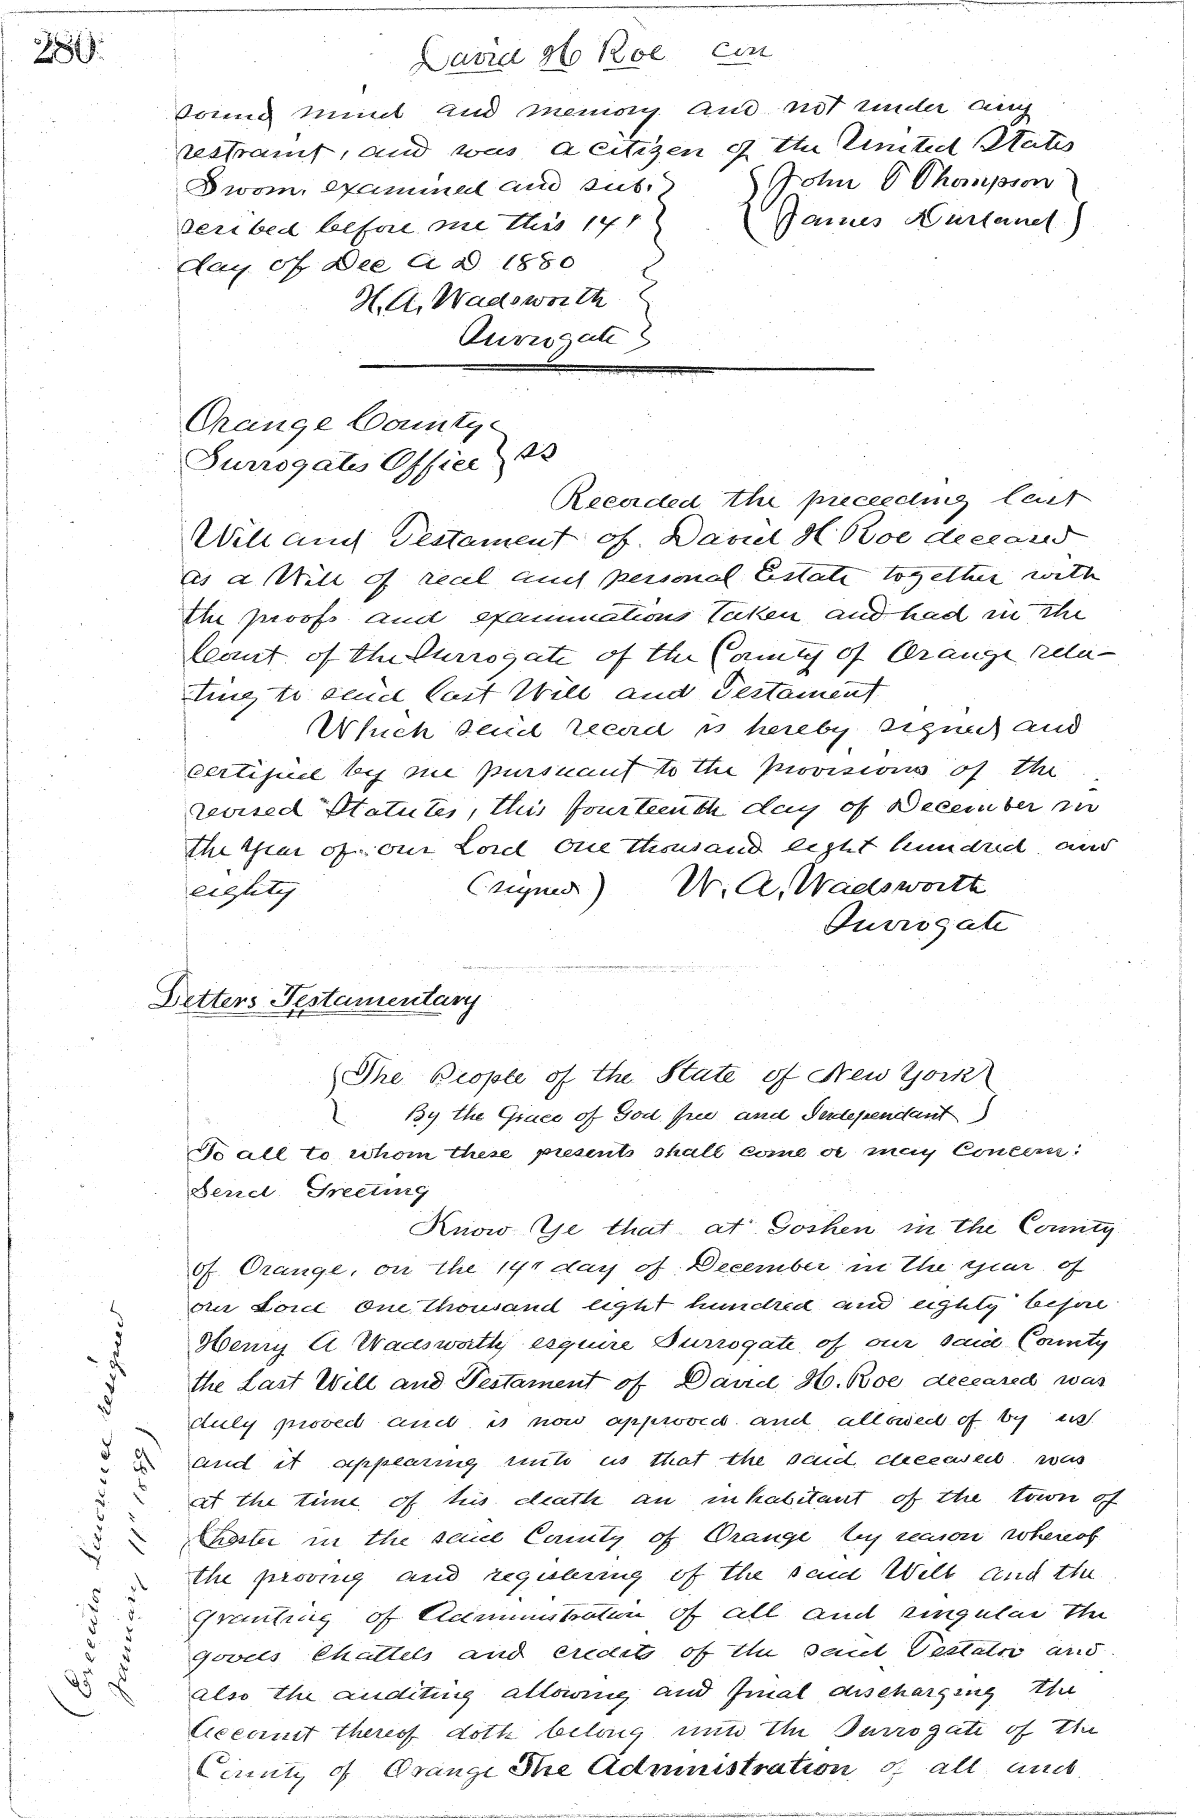 280.
David H Roe con
sound mind and memory and not under any
restraint, and was a citizen of the United States
Sworn, examined and sub- } { John T Thompson }
scribed before me this 14" } { James Durland }
day of Dec A D 1880 }
H. A. Wadsworth }
Surrogate }
Orange County
Surrogates Office } ss
Recorded the preceeding last
Will and Testament of David H. Roe deceased
as a Will of real and personal Estate together with
the proofs and examinations taken and had in the
Court of the Surrogate of the County of Orange rela-
ting to said last Will and Testament
Which said record is hereby signed and
certified by me pursuant to the provisions of the
revised Statutes, this fourteenth day of December in
the year of our Lord one thousand eight hundred and
eighty (signed) H. A. Wadsworth
Surrogate
Letters Testamentary
{ The People of the State of New York }
{ By the Grace of God free and Independant }
To all to whom these presents shall come or may Concern:
Send Greeting
Know Ye that at Goshen in the County
of Orange, on the 14" day of December in the year of
our Lord one thousand eight hundred and eighty before
Henry A Wadsworth esquire Surrogate of our said County
the Last Will and Testament of David H. Roe deceased was
duly proved and is now approved and allowed of by us
and it appearing unto us that the said deceased was
at the time of his death an inhabitant of the town of
Chester in the said County of Orange by reason whereof
the proving and registering of the said Will and the
granting of Administration of all and singular the
goods Chattels and credits of the said Testator and
also the auditing allowing and final discharging the
Account thereof doth belong unto the Surrogate of the
County of Orange The Administration of all and
(Executor Lawrence resigned
January 11" 1889)